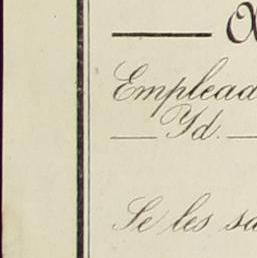 Emplead
Yd.
Se les sa